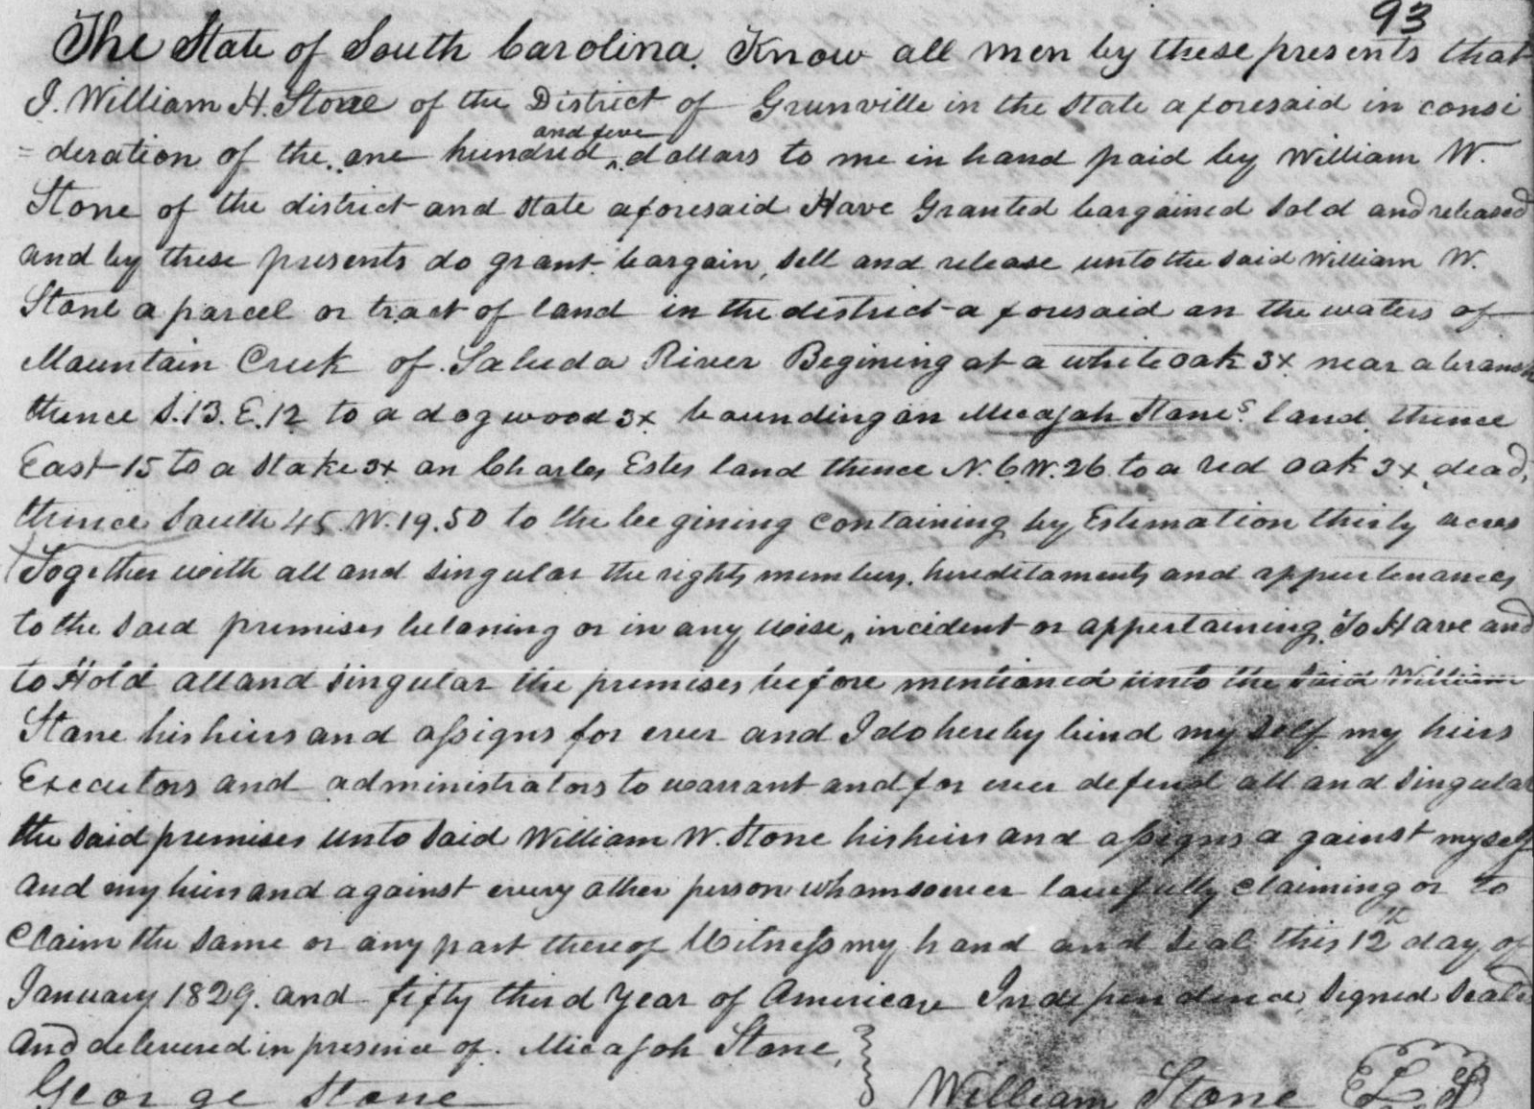 93
The State of South Carolina. Know all men by these presents that
I. William H. Stone of the District of Grunville in the State aforesaid in consi
= deration of the one hundred and five dollars to me in hand paid by William W.
Stone of the district and state aforesaid Have Granted bargained Sold and released
and by these presents do grant bargain, sell and release unto the said William W.
Stone a parcel or tract of land in the district aforesaid on the waters of
Mountain Creek of Saluda River Begining at a white oak 3x near a branch
thence S. 13. E. 12 to a dogwood 3x bounding on Micajah Stones land. thence
East 15 to a stake 3x on Charles Estes land thence N. 6 W. 26 to a red oak 3x, dead,
thence South 45. W. 19.50 to the begining containing by Estemation thirty acres
Together with all and singular the rights members, hereditaments and appurtenances
to the said premises beloning or in any wise, incident or appertaining, To Have and
to Hold all and singular the premises before mentioned unto the said William
Stone his heirs and assigns for ever and I do hereby bind my self my heirs
Executors and administrators to warrant and for ever defend all and singular
the said premises unto said William W. Stone his heirs and assigns against myself
and my heirs and against every other person whomsoever lawfully claiming or to
Claim the same or any part thereof Witness my hand and seal this 12th day of
January 1829. and fifty third Year of American Independence, Signed Seald
and delivered in presence of. Micajah Stone,
George Stone William Stone L S